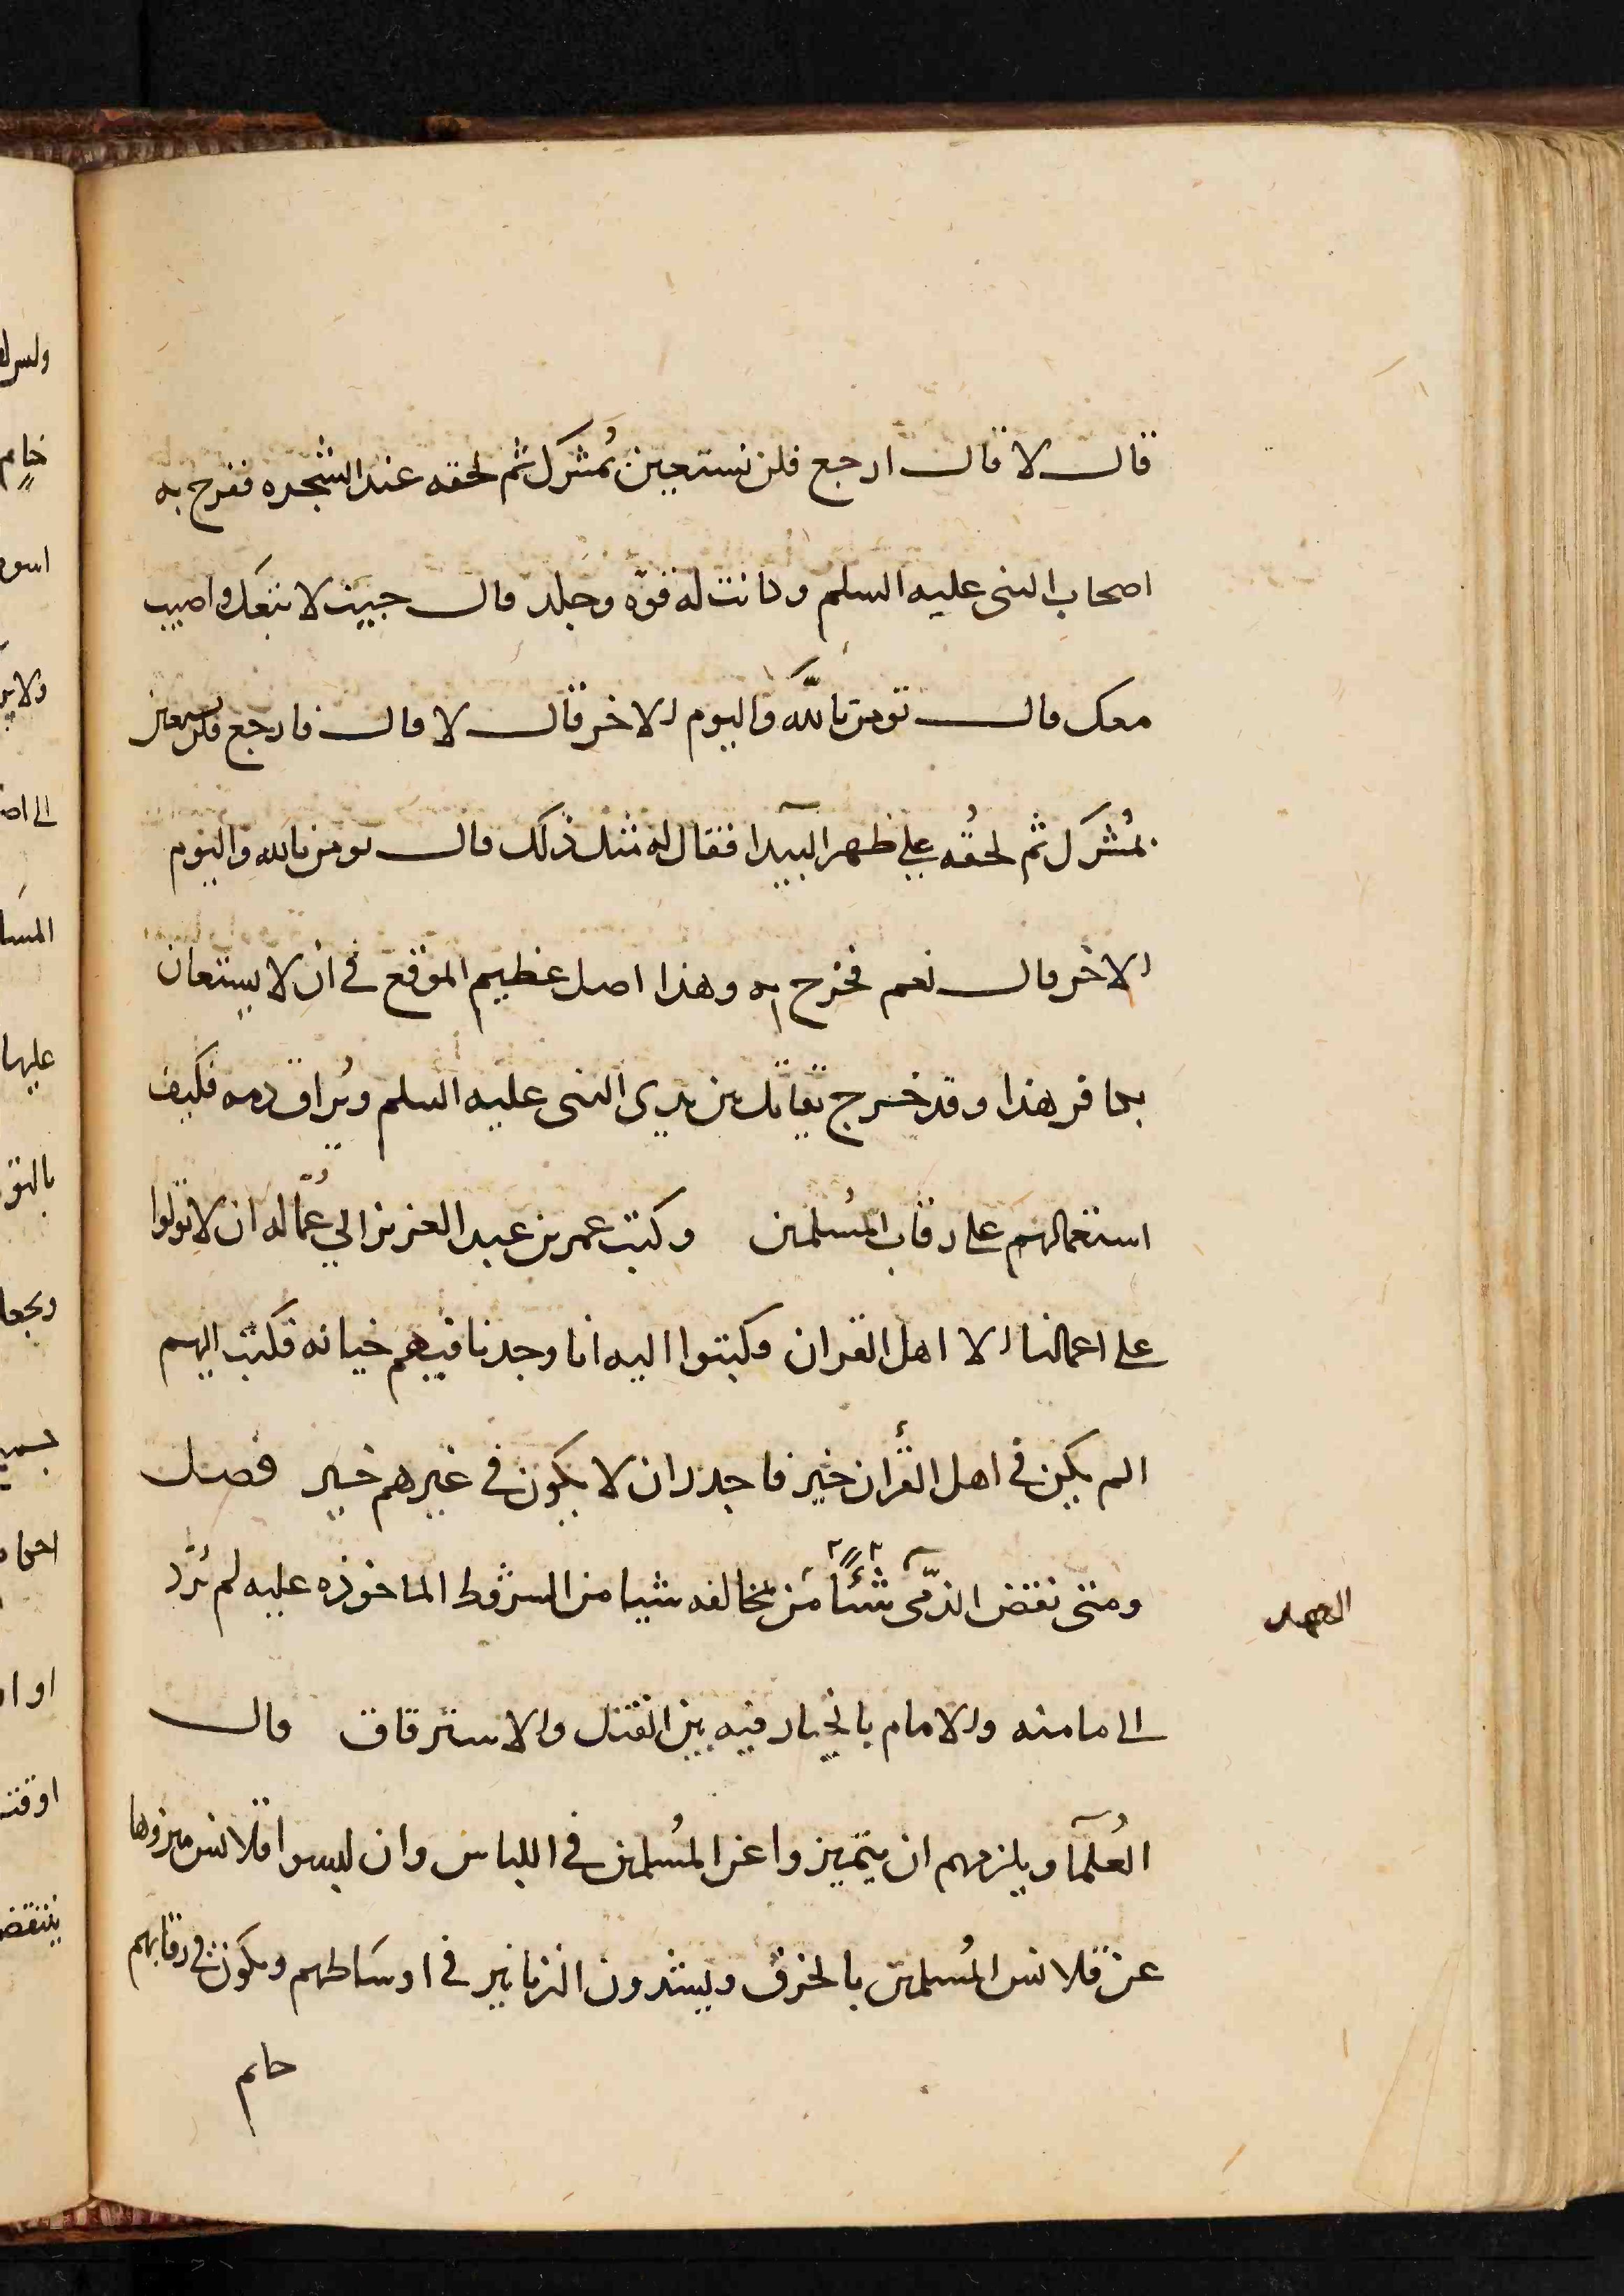 قال لا قال ارجع فلن نستعين بمُشرك ثم لحقه عند الشجره ففرح به
اصحاب النبى عليه السلم وكانت له قوّه وجلد قال جيت لاتبعك واصيب
معك قال تومن بالله واليوم الاخر قال لا قال فارجع فلن نستعين
بمُشرك ثم لحقه على ظهر البيدآ فقال له مثل ذلك قال تومن بالله واليوم
الاخر قال نعم فخرج به وهذا اصل عظيم الموقع فى ان لا يستعان
بكافر هذا وقد خرج يقاتل بين يدى النبى عليه السلم ويُراق دمه فكيف
استعمالهم على رقاب المُسلمين وكتب عمر بن عبد العزيز الى عُمّاله ان لا تولوا
على اعمالنا الا اهل القران فكتبوا اليه انا وجدنا فيهم خيانه فكتب اليهم
ان لم يكن فى اهل القرأن خير فاجدر ان لا يكون فى غيرهم خير فصل
ومتى نقض الذمّى شئًا من مخالفه شيا من الشروط الماخوذه عليه لم يُردّ
العهد
الى مامنه والامام بالخيار فيه بين القتل والاسترقاق قال
العُلمآ ويلزمهم ان يتميزوا عن المُسلمين فى اللباس وان لبسوا قلانس ميزوها
عن قلانس المُسلمين بالخرق ويشدون الزنانير فى اوساطهم ويكون فى رقابهم
خاتم